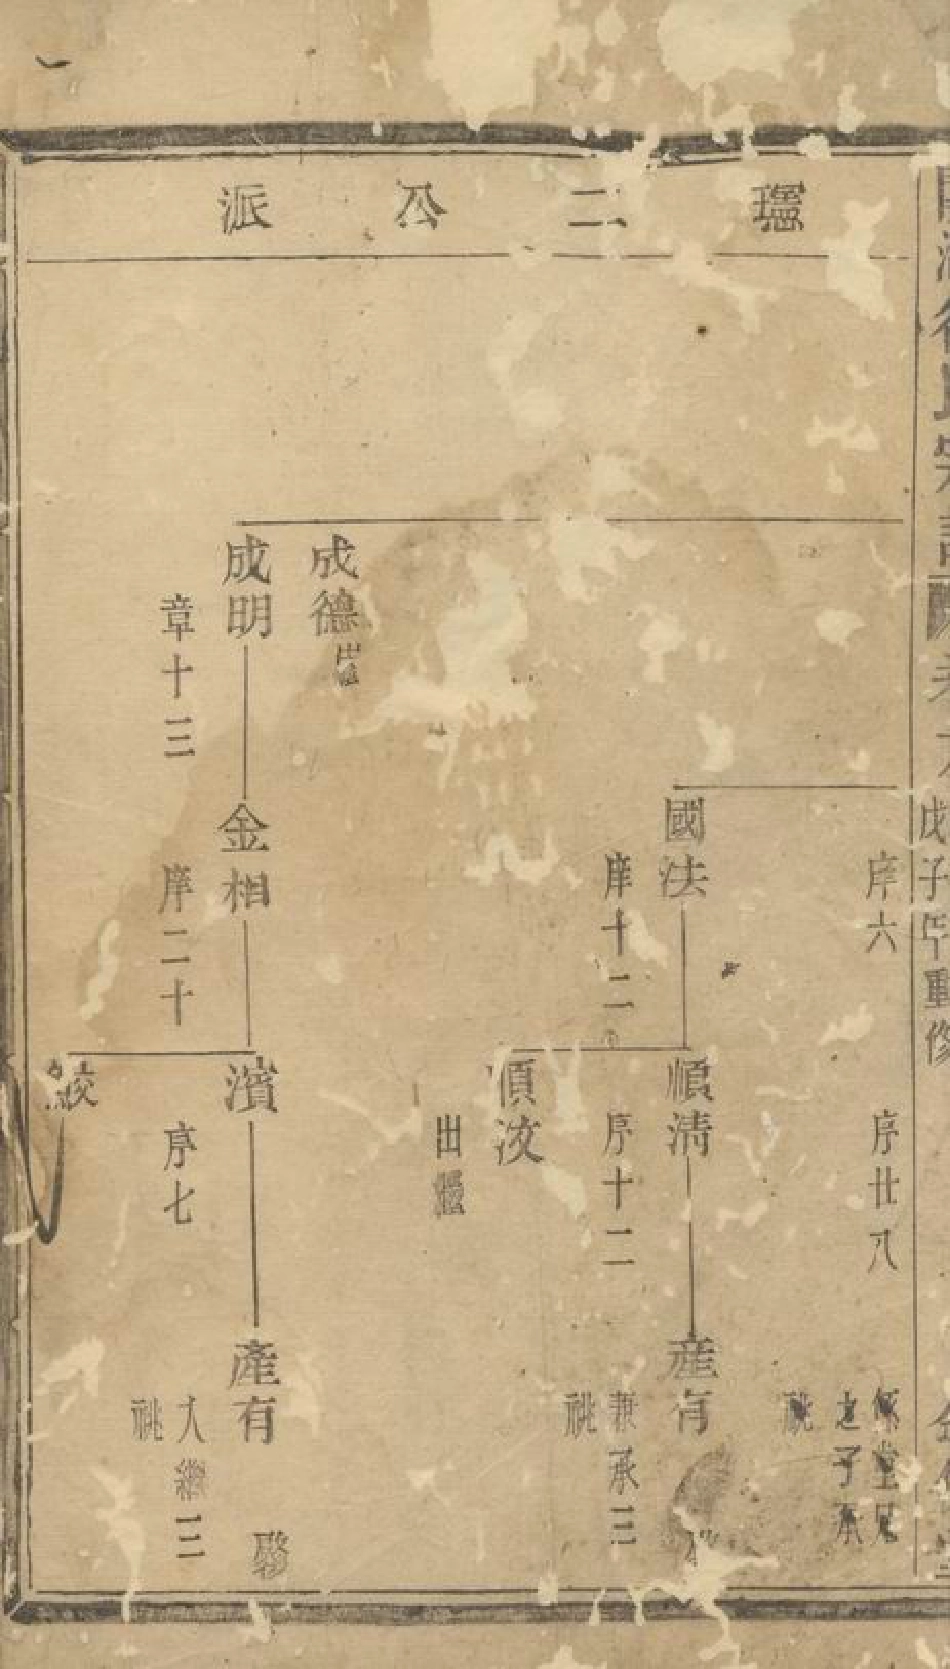 二公派
戊子年重修
序六
序廿八
係堂兄
之子承
祧
國法
順清
產有
庠十二
序十二
兼承三
祧
順汝
出繼
成德
出繼
成明
金相
濱
產有
章十三
庠二十
序七
入繼三
祧